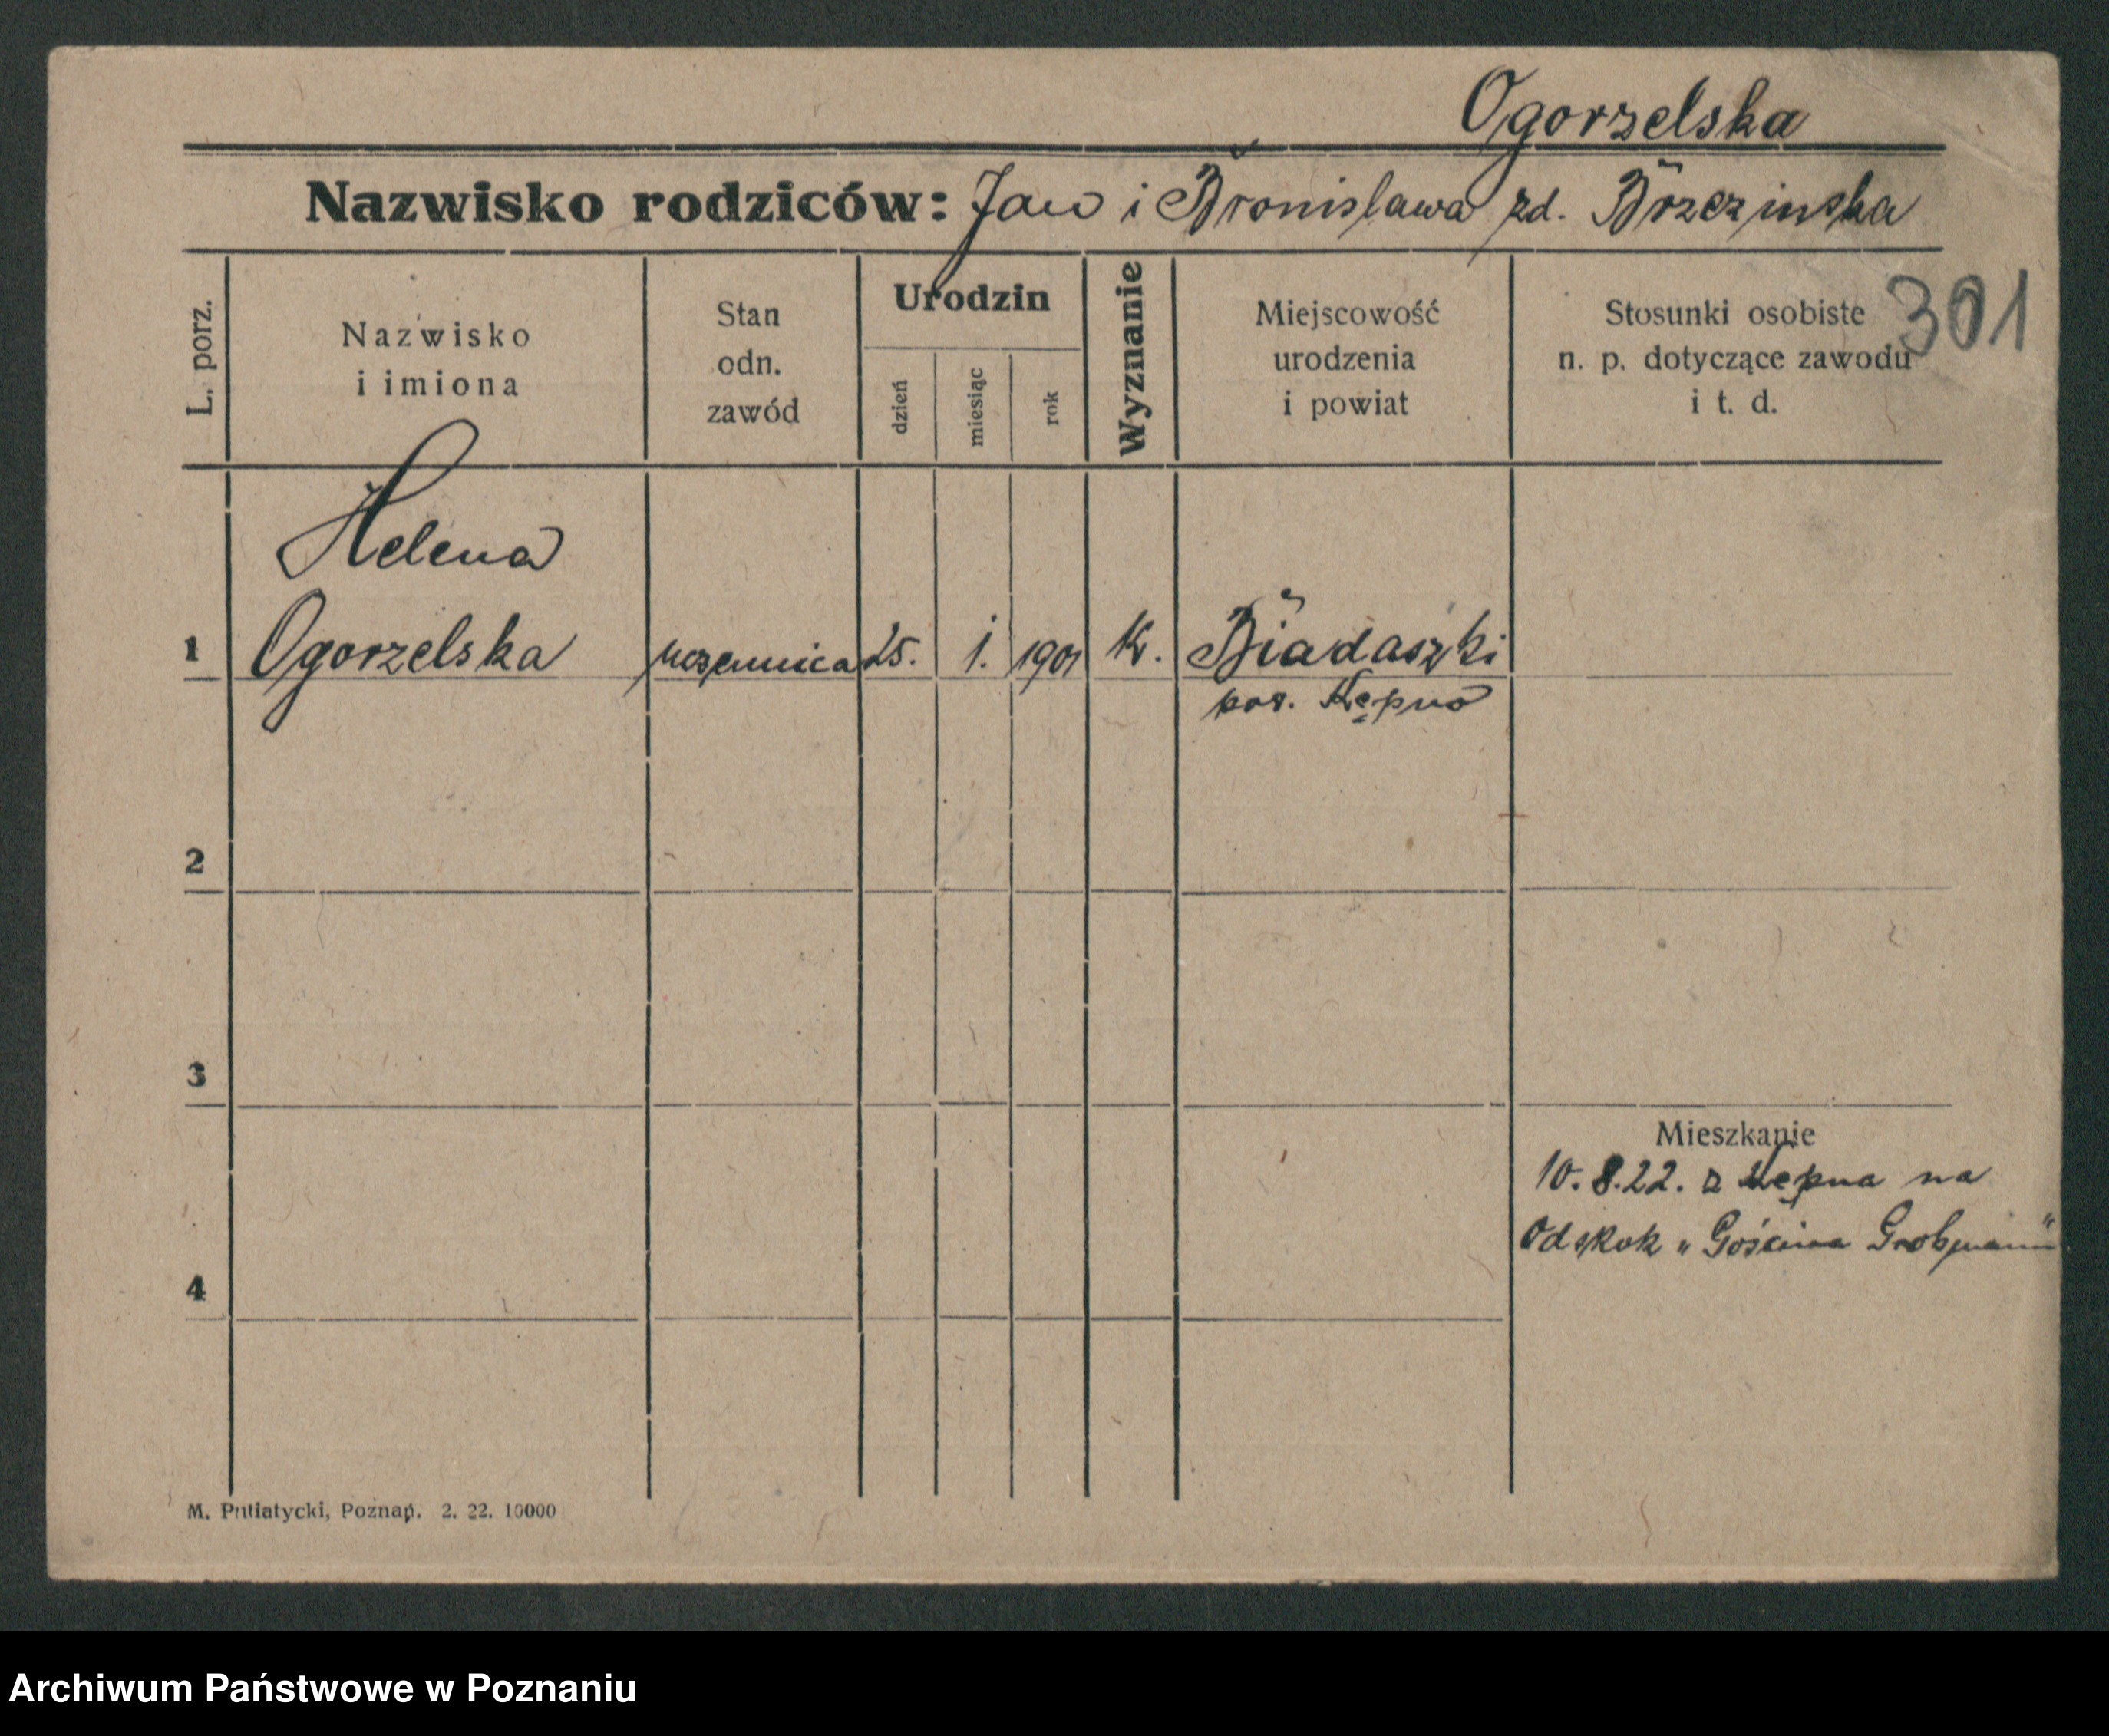 Ogorzelska
Nazwisko rodziców: Jan i Bronisława zd. Brzezinska
301
L. porz.
Nazwisko
i imiona
Stan
odn.
zawód
Urodzin
dzień
miesiąc
rok
Wyznanie
Miejscowość
urodzenia
i powiat
Stosunki osobiste
n. p. dotyczące zawodu
i t. d.
Helena
1 Ogorzelska uczennica 25. 1. 1901 K. Biadaszki
pow. Kępno
2
3
Mieszkanie
10.8.22. z Kępna na
Odskok "
4
M. Putiatycki, Poznań. 2. 22. 10000
Archiwum Państwowe w Poznaniu